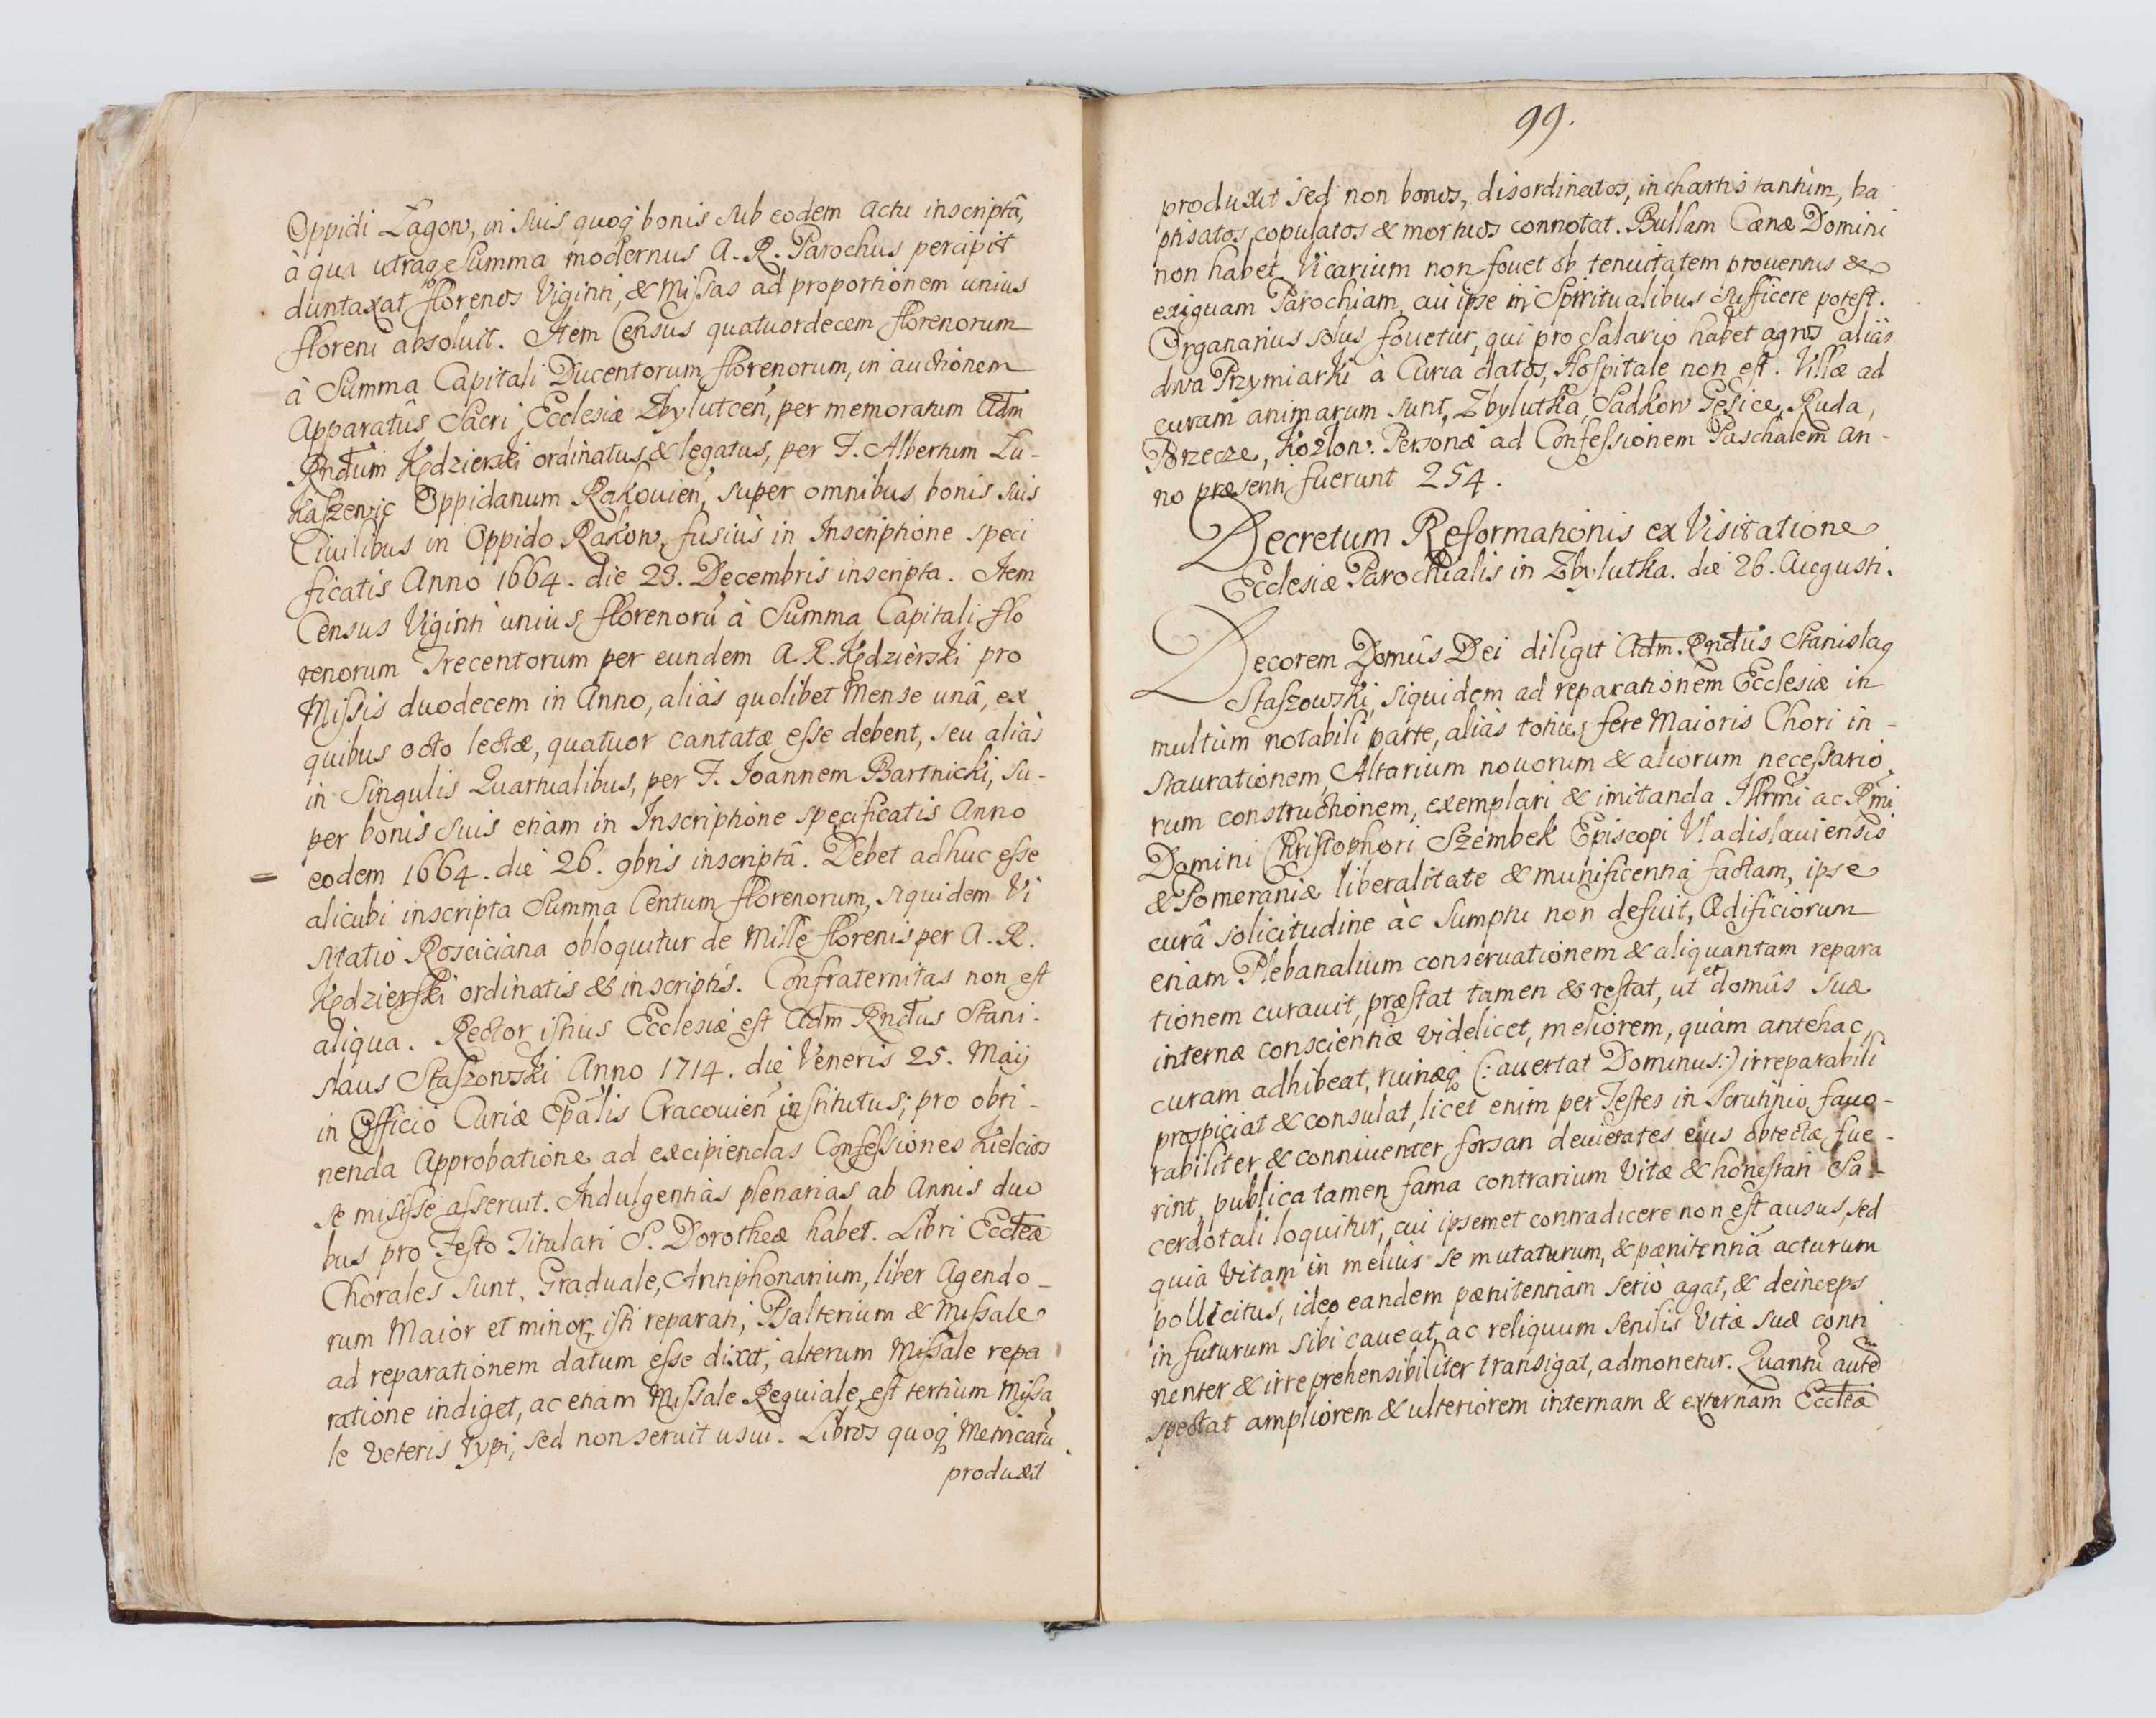 Oppidi Łagow, in suis quoq bonis sub eodem actu inscriptâ,
à qua utraqe Summa modernus A. R. Parochus percipit
duntaxat florenos Viginti, & Missas ad proportionem unius
floreni absoluit. Item Census quatuordecem florenorum
à Summa Capitali Ducentorum florenorum, in auctionem
Apparatûs Sacri Ecclesiæ Zbylutceñ, per memoratum Adm
Rndum Kędzierski ordinatus & legatus, per F. Albertum Lu-
kaszewic Oppidanum Rakouieñ, super omnibus bonis suis
Ciuilibus in Oppido Rakow, fusiùs in Inscriptione speci
ficatis Anno 1664. die 23. Decembris inscripta. Item
Census Viginti unius florenorũ à Summa Capitali flo
renorum Trecentorum per eundem A. R. Kędzierski pro
Missis duodecem in Anno, aliàs quolibet Mense unâ, ex
quibus octo lectæ, quatuor cantatæ esse debent, seu aliàs
in Singulis Quartualibus, per F. Ioannem Bartnicki, su-
per bonis suis etiam in Inscriptione specificatis Anno
eodem 1664. die 26. 9bris inscriptâ. Debet adhuc esse
alicubi inscripta Summa Centum florenorum, siquidem Vi
sitatio Rosciciana obloquitur de Mille florenis per A. R.
Kędzierski ordinatis & inscriptis. Confraternitas non est
aliqua. Rector istius Ecclesiæ est Adm Rndus Stani-
slaus Staszowski Anno 1714. die Veneris 25. Maij
in Officio Curiæ Epalis Cracouieñ institutus; pro obti-
nenda Approbatione ad excipiendas Confessiones Kielcios
se misisse asseruit. Indulgentiàs plenarias ab Annis duo
bus pro Festo Titulari S. Dorotheæ habet. Libri Eccleæ
Chorales sunt, Graduale, Antiphonarium, liber Agendo-
rum Maior et minor isti reparati, Psalterium & Missale
ad reparationem datum esse dixit, alterum Missale repa
ratione indiget, ac etiam Missale Requiale, est tertium Missa
le veteris typi, sed non seruit usui. Libros quoq Metricarũ
produxit
99.
produxit sed non bonos, disordinatos, in chartis tantùm, ba
ptisatos, copulatos & mortuos connotat. Bullam Cænæ Domini
non habet Vicarium non fouet ob tenuitatem prouentus &
exiguam Parochiam, cui ipse in Spiritualibus sufficere potest.
Organarius solus fouetur, qui pro Salario habet agros aliàs
dwa Przymiarki à Curia datos, Hospitale non est. Villæ ad
curam animarum sunt, Zbylutka, Sadkow Gęsice, Ruda,
Porzecze, Kozłow. Personæ ad Confessionem Paschalem an-
no præsenti fuerunt 254.
Decretum Reformationis ex Visitatione
Ecclesiæ Parochialis in Zbylutka. die 26. Augusti.
Decorem Domûs Dei diligit Adm. Rndus Stanislaq
Staszowski, siquidem ad reparationem Ecclesiæ in
multùm notabili parte, aliàs totius fere Maioris Chori in-
staurationem, Altarium nouorum & aliorum necessario
rum constructionem, exemplari & imitanda Illrmi ac Rmi
Domini Christophori Szembek Episcopi Vladislauiensis
& Pomeraniæ liberalitate & munificentia factam, ipse
curâ solicitudine àc sumptu non defuit, Ædificiorum
etiam Plebanalium conseruationem & aliquantam repara
tionem curauit, præstat tamen & restat, ut et domûs suæ
internæ conscientiæ videlicet, meliorem, quàm antehac,
curam adhibeat, ruinæq (: auertat Dominus :) irreparabili
prospiciat & consulat, licet enim per Testes in Scrutinio, fauo-
rabiliter & conniuenter forsan deuietates eius obtectæ fue-
rint, publica tamen fama contrarium Vitæ & honestati Sa-
cerdotali loquitur, cui ipsemet contradicere non est ausus, sed
quià Vitam in meliùs se mutaturum, & pænitentiã acturum
pollicitus, ideo eandem pænitentiam seriò agat, & deinceps
in futurum sibi caueat, ac reliquum senilis Vitæ suæ conti
nenter & irreprehensibiliter transigat, admonetur. Quantũ autẽ
spectat ampliorem & ulteriorem internam & externam Eccleæ